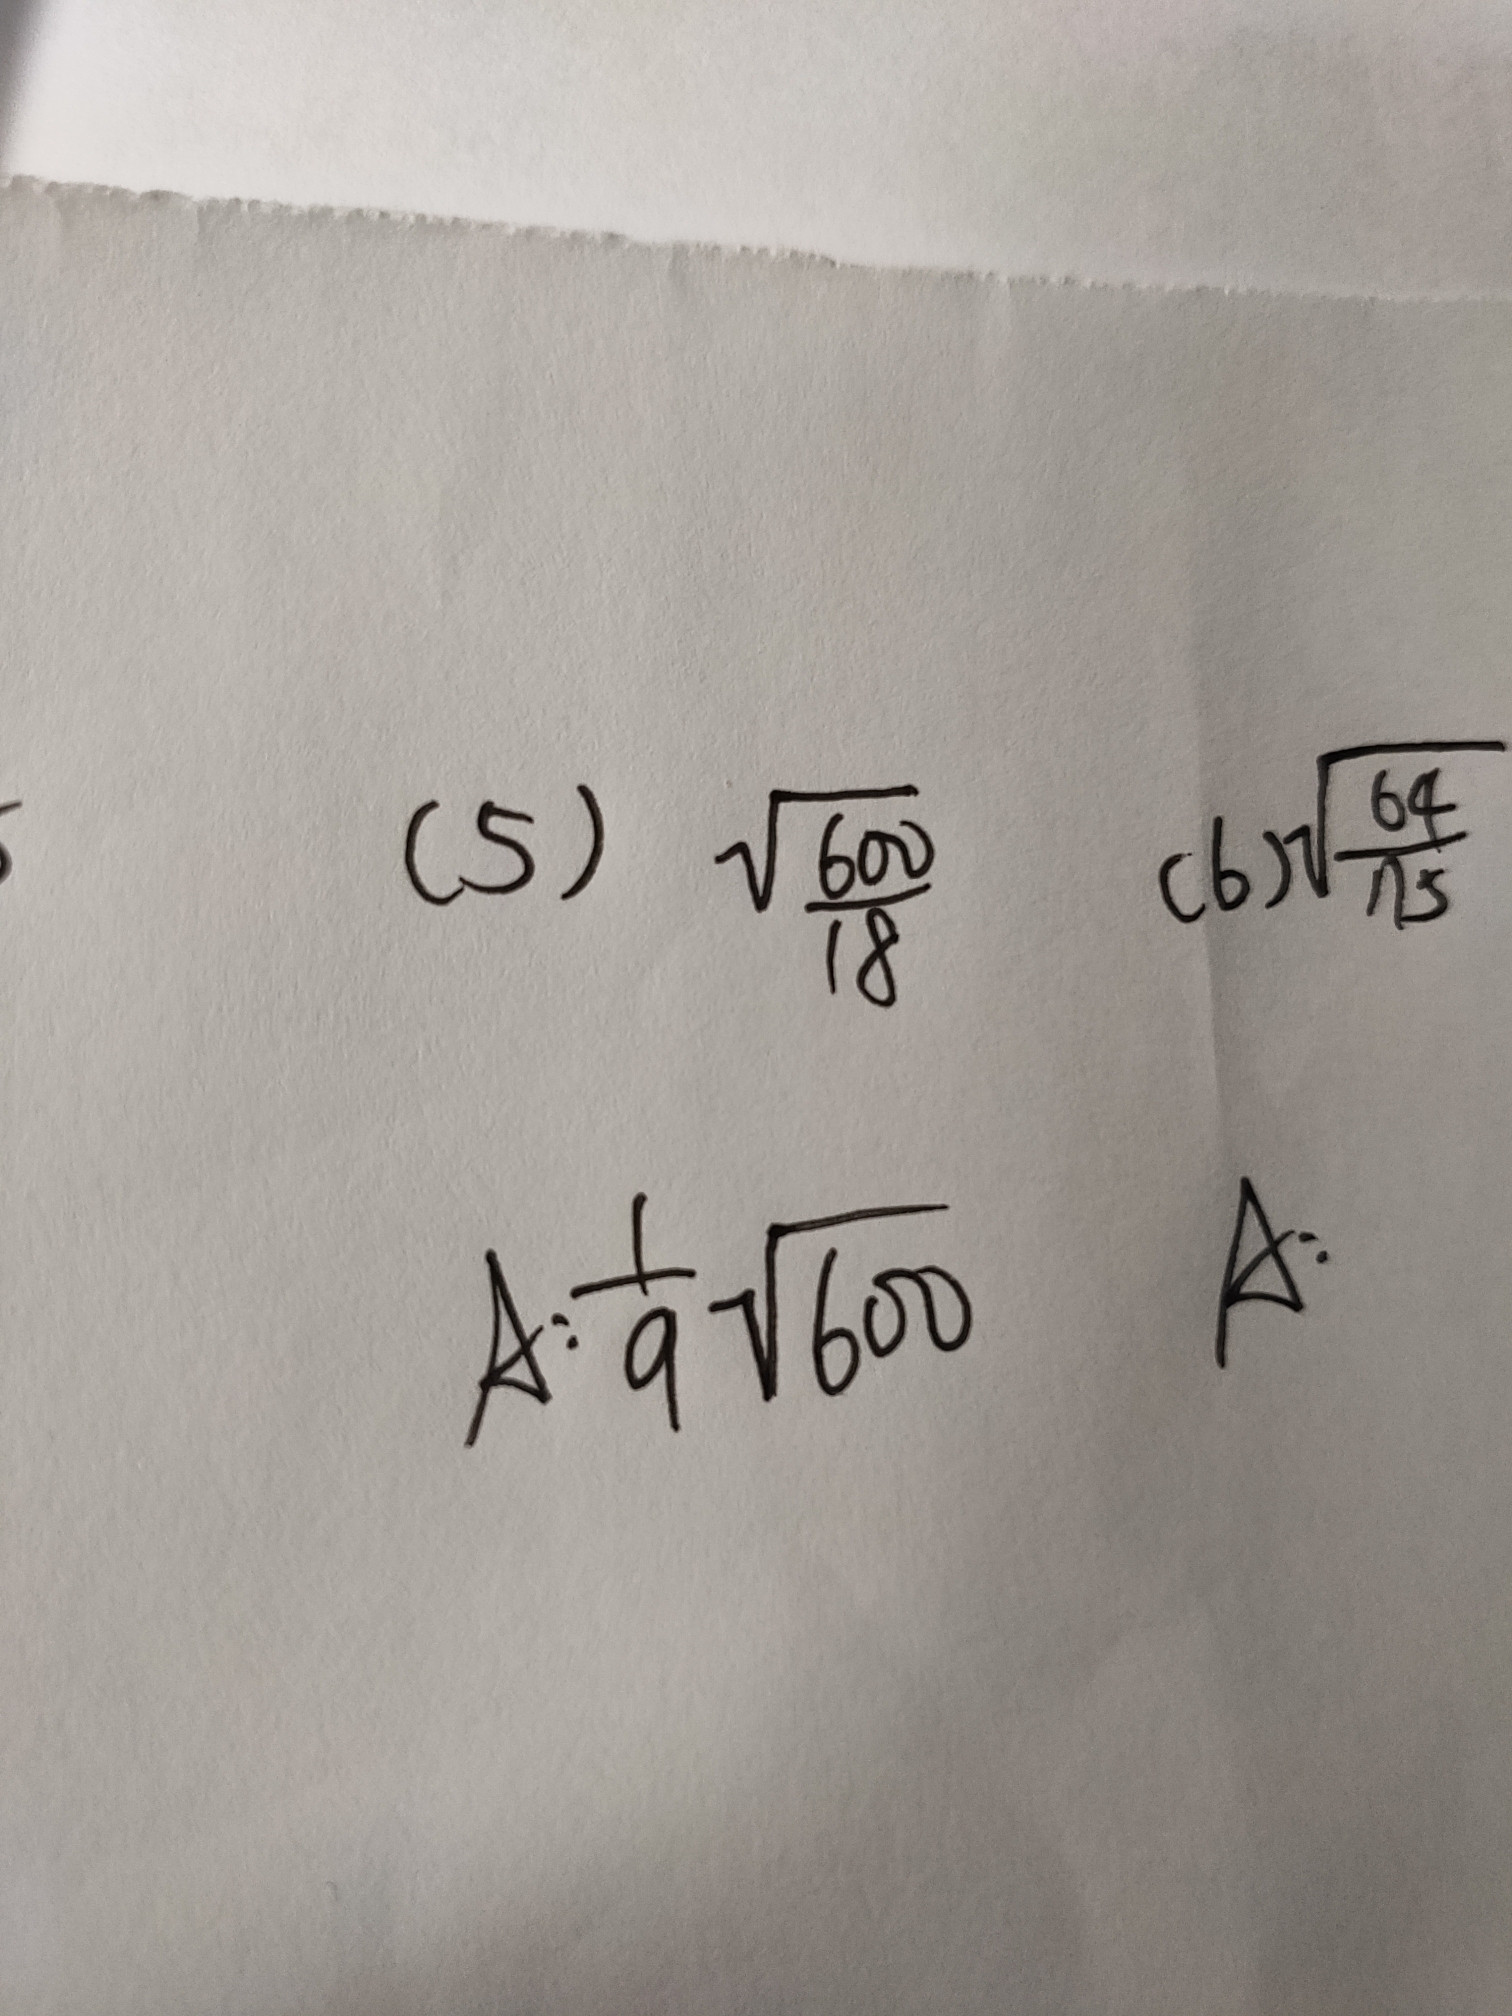 (5) √600/18 (6) √64/75
A: 1/9 √600 A: